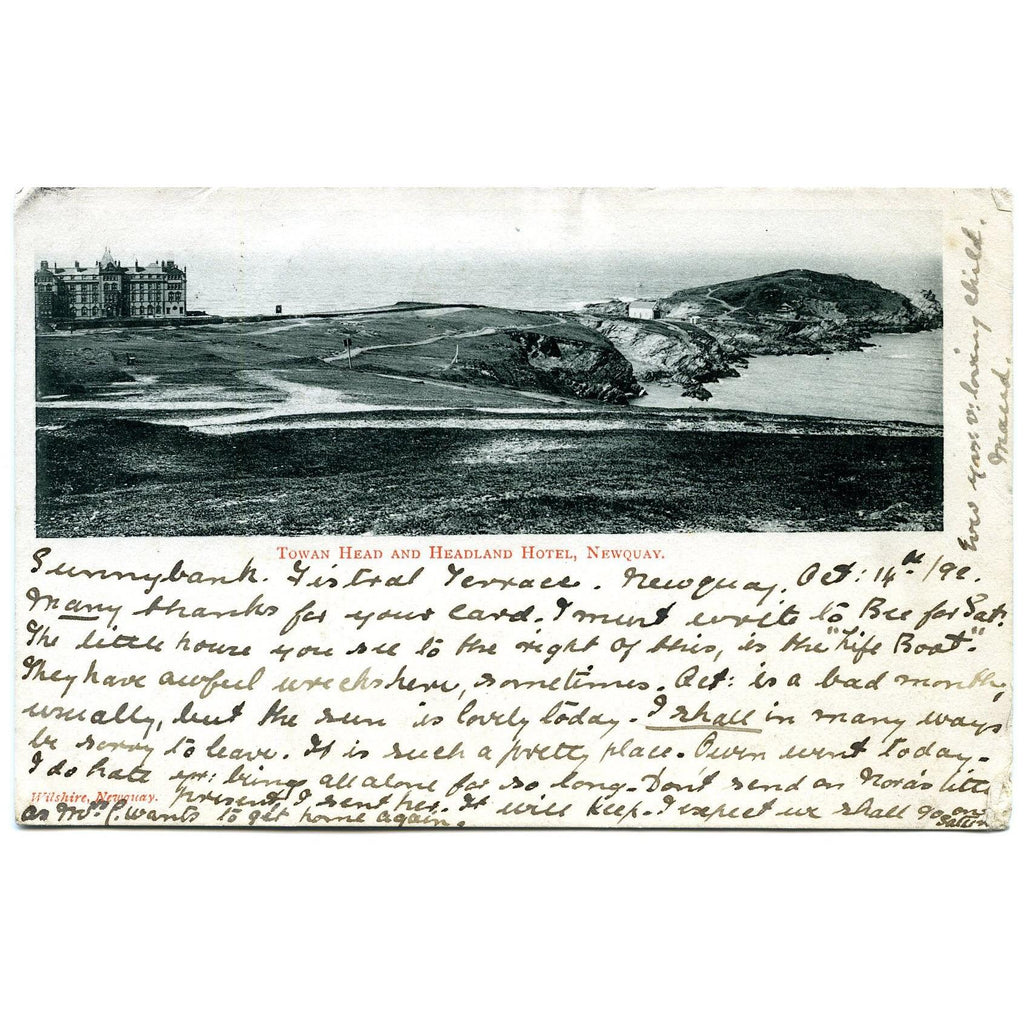 TOWAN HEAD AND HEADLAND HOTEL, NEWQUAY.
Sunnybank. Fistral Terrace. Newquay. Oct: 14th
Many thanks for your card. I must write to Bee for Sat:
The little house you see to the right of this, is the "Life Boat".
They have awful wrecks here, sometimes. Oct: is a bad month,
usually, but the sun is lovely today. I shall in many ways
be sorry to leave. It is such a pretty place. Owen went today.
I do hate yr: being all alone for so long. Don't send on Nora's little
Wilshire, Newquay.
present, I sent her. It will keep. I expect we shall go on
as Mrs C. wants to get home again.
Ever yours v: loving child.
Maud.